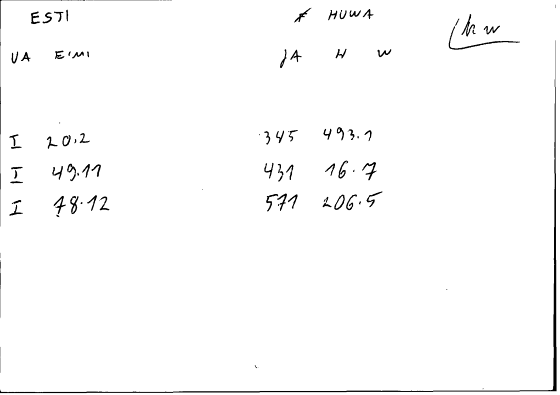 ESTI ≠ HUWA
UA EIMI JA H W
I 20.2 345 493.1
I 49.11 431 16.7
I 78.12 571 206.5